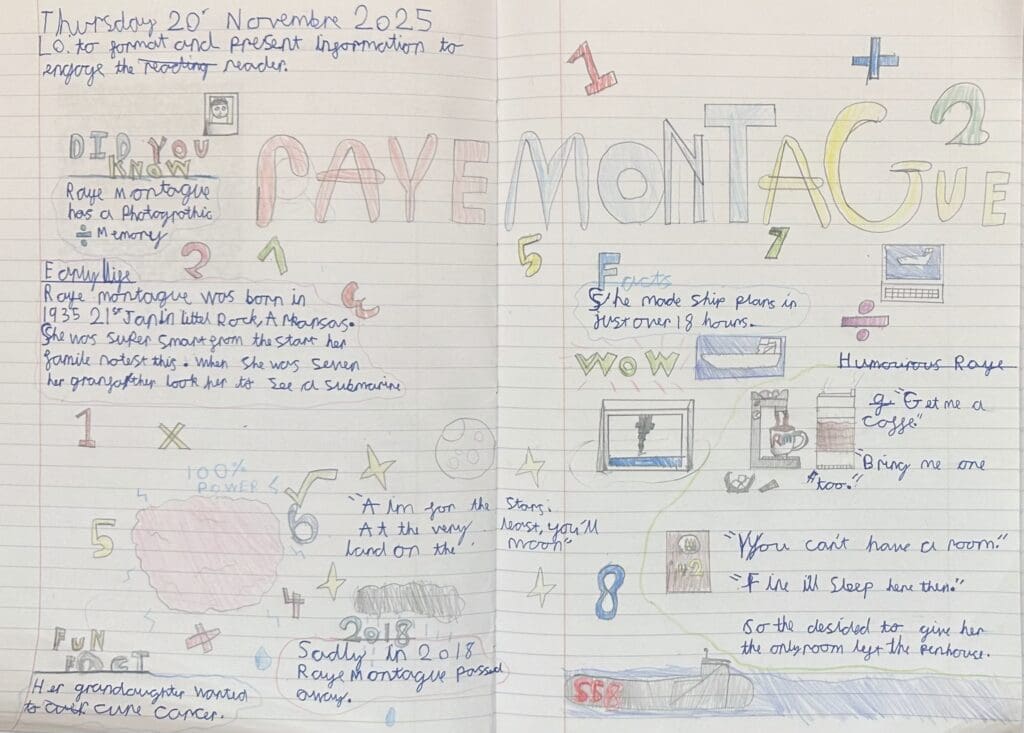 Thursday 20th Novembre 2025
L.O. to format and present information to
engage the reading reader.
DID YOU
KNOW
Raye Montague
has a Photogrothic
÷ Memory
RAYE MONTAGUE
1
+
2
2
1
5
7
Early life
Raye montague was born in
1935 21st Jan in littel Rock, Arkansas.
She was super smart from the start her
famile notest this. When she was seven
her grangfather look her to see a submarine
3
1
x
100%
POWER
5
√
6
4
+
"Aim for the stars:
At the very least, you'll
land on the moon"
FUN
FACT
Her grandaughter wanted
to cure cancer.
2018
Sadly in 2018
Raye Montague passed
away.
Facts
She made ship plans in
Just over 18 hours.
WOW
÷
Humourous Raye
"Get me a
coffe."
"Bring me one
too."
8
"You can't have a room."
"Fine ill sleep here then."
So the desided to give her
the only room left the penhouse.
558